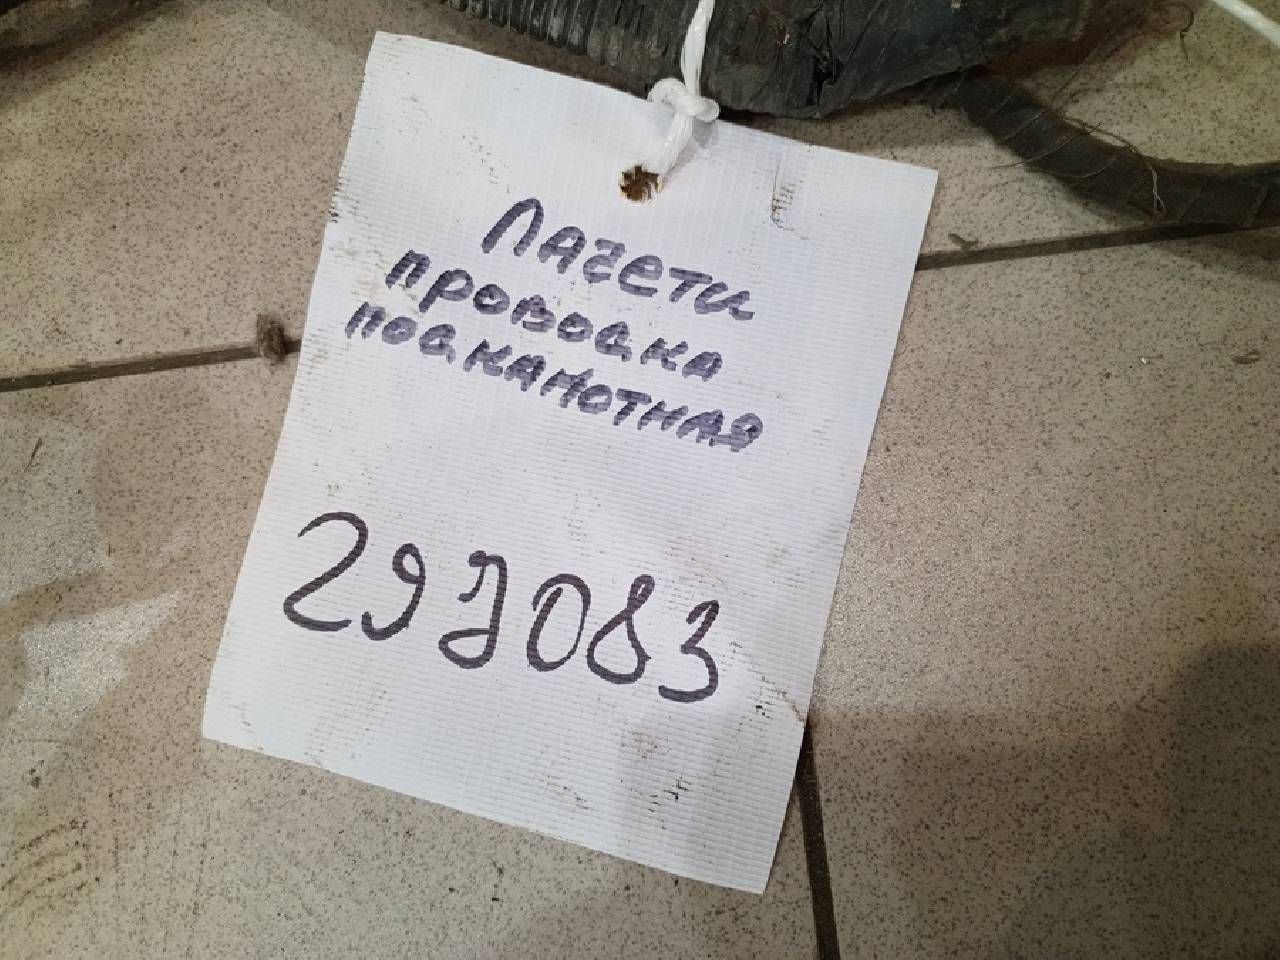 Лачети
проводка
подкапотная
293083